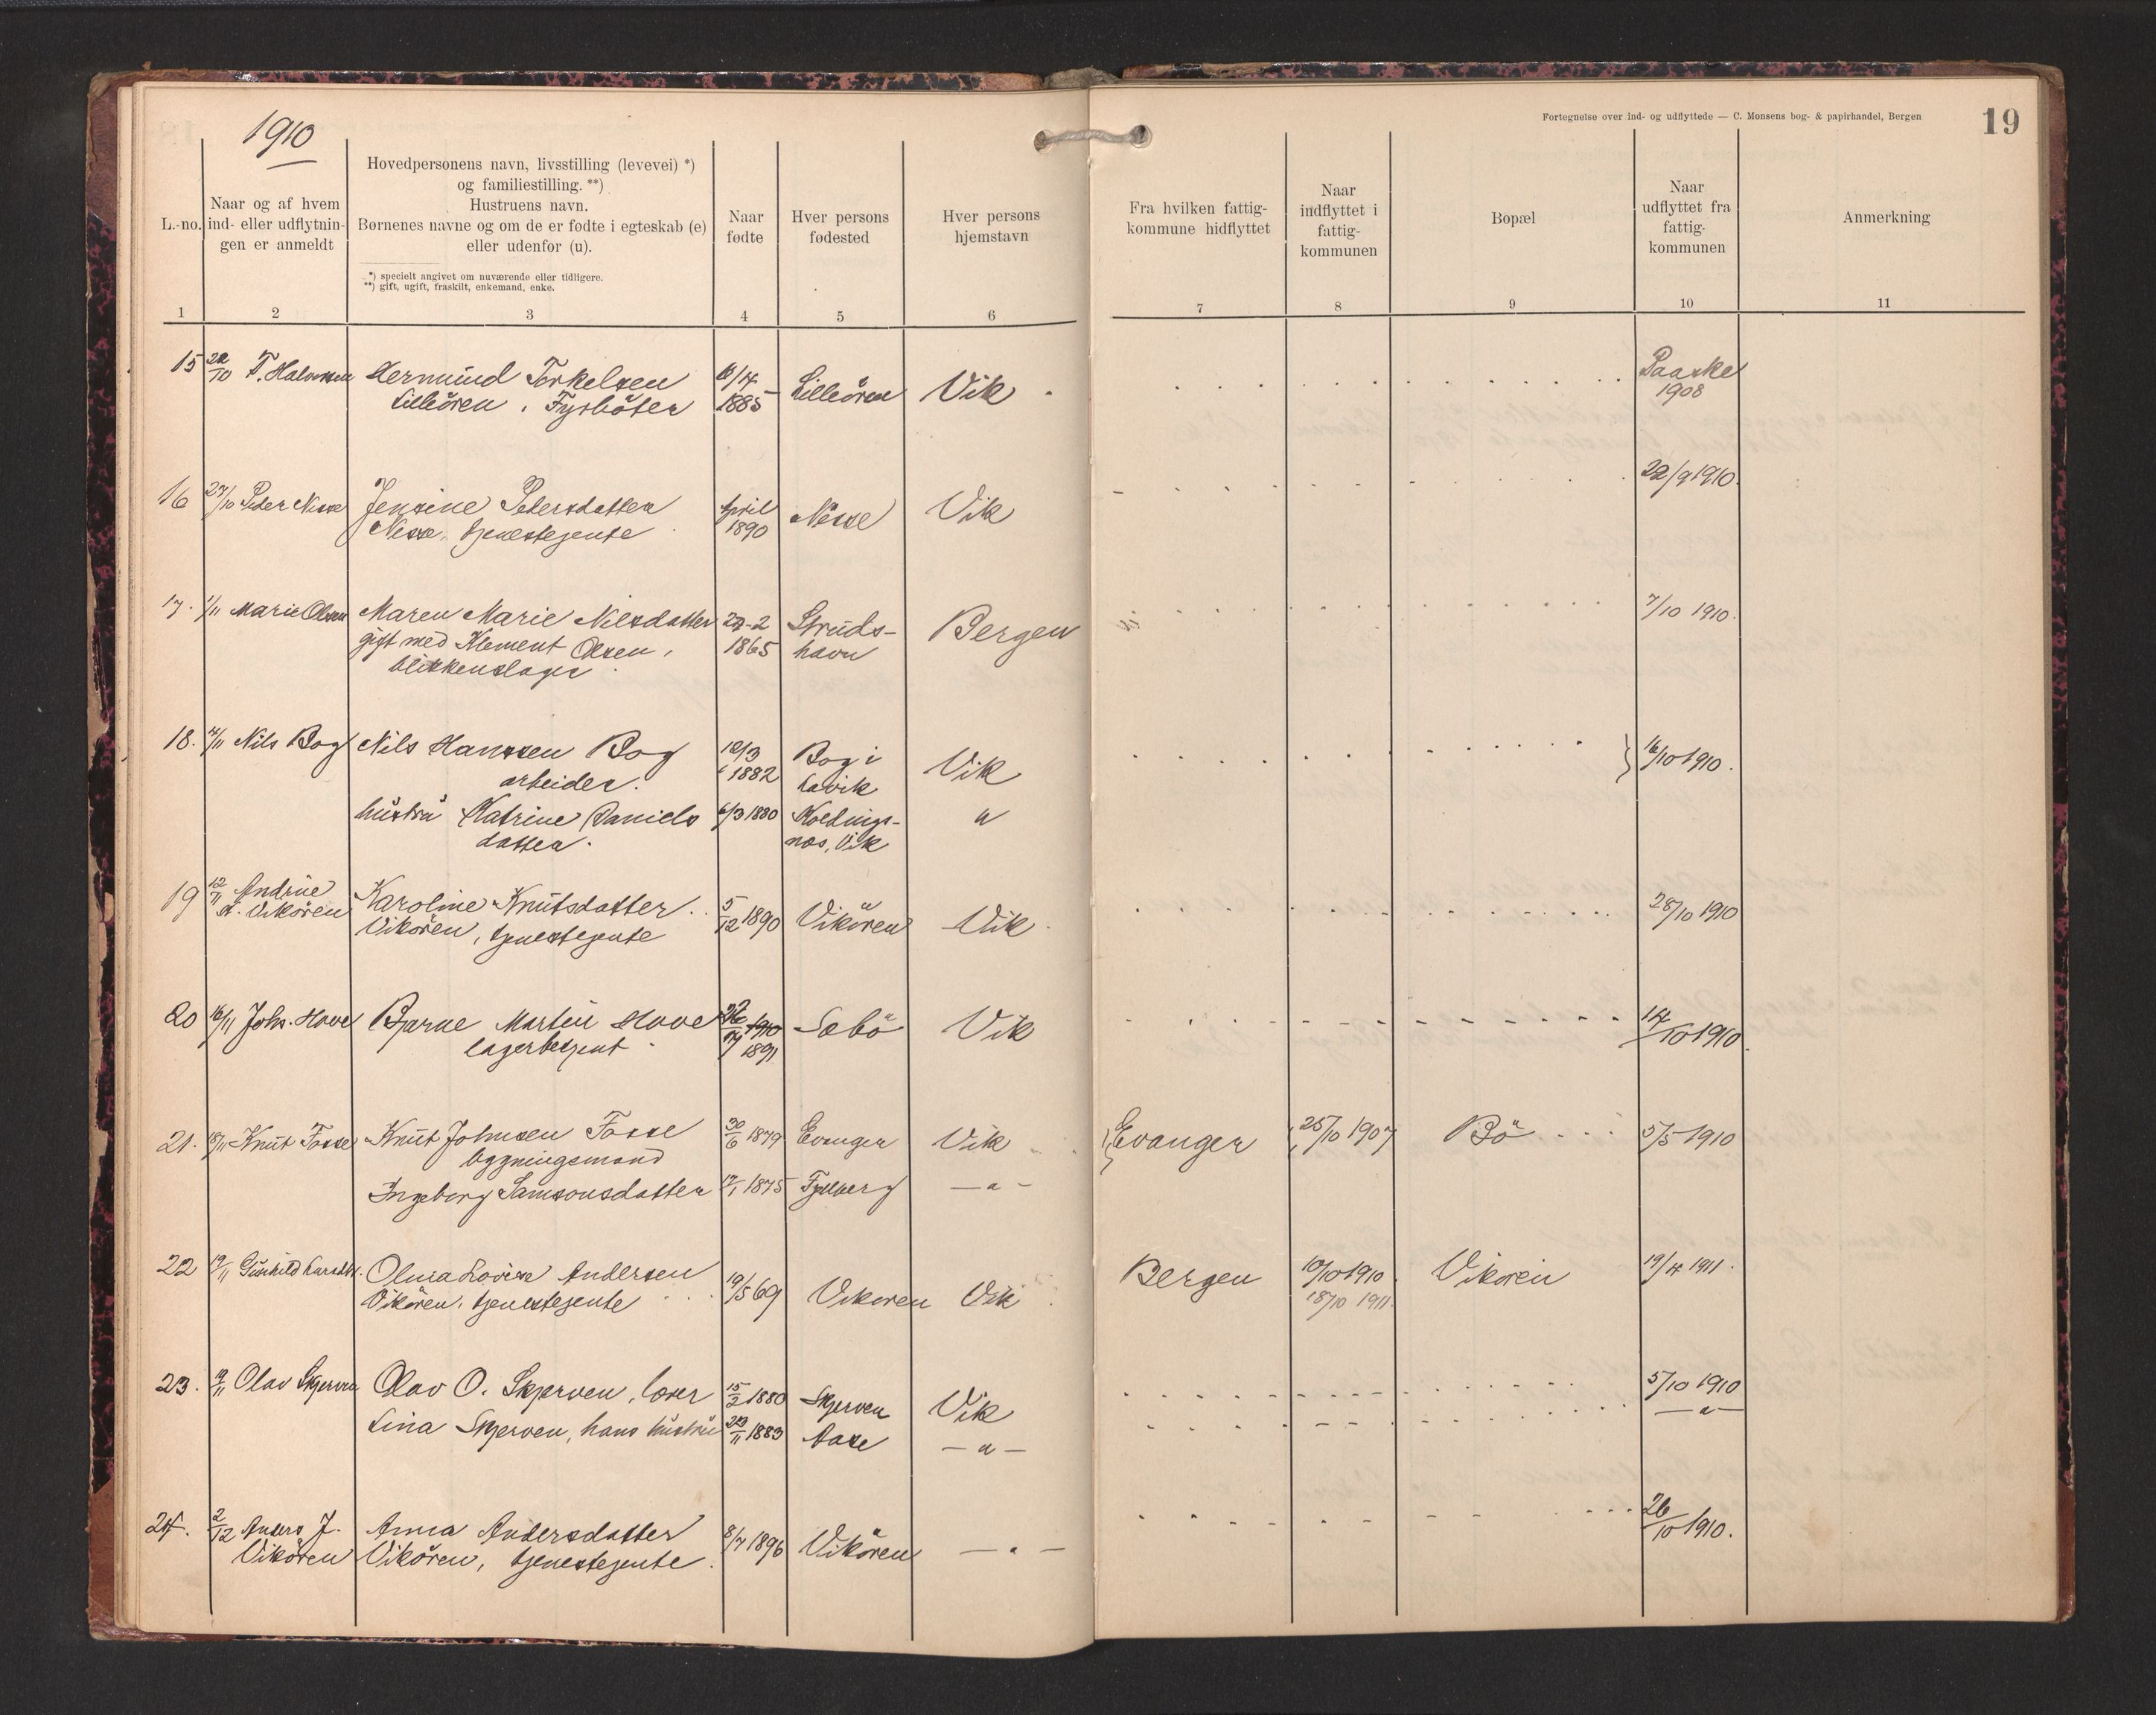 1910
Fortegnelse over ind- og udflyttede — C. Monsens bog- & papirhandel, Bergen
19
L.-no.
Naar og af hvem
ind- eller udflytnin-
gen er anmeldt
Hovedpersonens navn, livsstilling (levevei) *)
og familiestilling. **)
Hustruens navn.
Børnenes navne og om de er fødte i egteskab (e)
eller udenfor (u).
*) specielt angivet om nuværende eller tidligere.
**) gift, ugift, fraskilt, enkemand, enke.
Naar
fødte
Hver persons
fødested
Hver persons
hjemstavn
Fra hvilken fattig-
kommune hidflyttet
Naar
indflyttet i
fattig-
kommunen
Bopæl
Naar
udflyttet fra
fattig-
kommunen
Anmerkning
1 2 3 4 5 6 7 8 9 10 11
15 /10 T. Halvorsen Hermund Torkelsen 6/4 Lilleören Vik Paaske
Lilleören, Fyrböter 1885 1908
16 27/10 Peder Nesse Jensine Pedersdatter April Nesse Vik 22/9 1910.
Nesse, tjenestejente 1890
17. 1/11 Marie Olsen Maren Marie Nilsdatter -2 Struds- Bergen 7/10 1910.
gift med Klement Olsen, 1865 havn
blikkenslager
18. 4/11 Nils Bog Nils Hanssen Bog 12/3 Bog i Vik 16/10 1910.
arbeider. 1882 Lavik
hustru Katrine Daniels 6/3 1880 "
datter. næs, Vik
19 12/11 Andrine Karoline Knutsdatter 5/12 1890 Vikören Vik 28/10 1910
Vikören Vikören, tjenestejente
20 16/11 Johs. Hove Bjarne Martin Hove 1910 Sæbö Vik 14/10 1910.
lagerbetjent 1891
21. 18/11 Knut Fosse Knut Johnsen Fosse 30/6 1879 Evanger Vik Evanger 25/10 1907 Bö 5/5 1910
bygningsmand
Ingeborg Samsonsdatter 17/1 1875 — " —
22 19/11 Gunhild Olina Lovise Andersen 19/5 69 Vikoren Vik Bergen 10/10 1910. Vikoren 19/4 1911.
Vikören, tjenestejente 18/10 1911.
23. 19/11 Olav Skjerven Olav O. Skjerven, lærer 15/2 1880 Skjerven Vik 5/10 1910
Lina Skjerven, hans hustru /11 1883 Aase — " — — " —
24. 2/12 Anders J. Anna Andersdatter 8/7 1896 Vikören — " — 26/10 1910.
Vikören Vikören, tjenestejente.